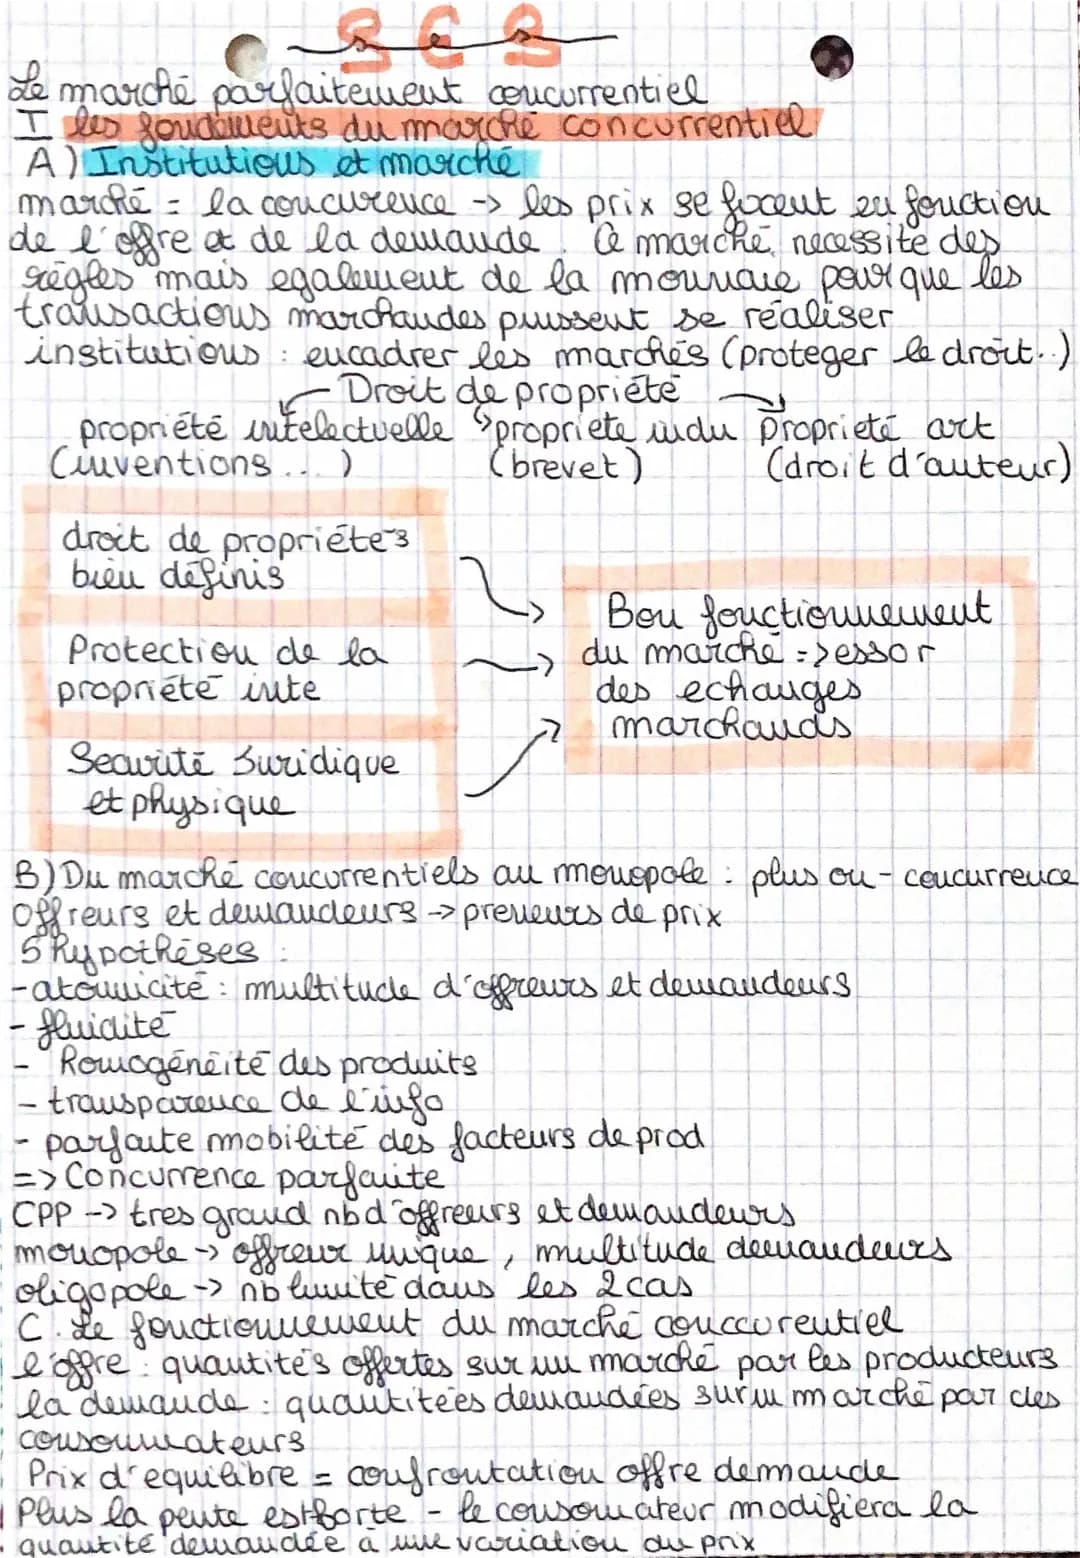 SES
Le marché parfaitement concurrentiel
I les fondements du marché concurrentiel
A) Institutions et marché
marché = la concurence -> les prix se fixent en fonction
de l'offre et de la demande. Ce marché necessite des
règles mais egalement de la monnaie pour que les
transactions marchandes puissent se réaliser
institutions : encadrer les marchés (proteger le droit..)
Droit de propriété
propriété intelectuelle propriete indu Propriété art
(inventions...) (brevet) (droit d'auteur)
droit de propriétés
bien définis
Protection de la
propriété inte
Securité Juridique
et physique
Bon fonctionnement
du marché => essor
des echanges
marchands
B) Du marché concurrentiels au monopole : plus ou - concurrence
Offreurs et demandeurs -> preneurs de prix
5 hypothèses :
- atomicité : multitude d'offreurs et demandeurs
- fluidité
- Homogénéité des produits
- transparence de l'info
- parfaite mobilité des facteurs de prod
=> Concurrence parfaite
CPP -> tres grand nb d'offreurs et demandeurs
monopole -> offreur unique, multitude demandeurs
oligopole -> nb limité dans les 2 cas
C. Le fonctionnement du marché conccurentiel
l'offre : quantités offertes sur un marché par les producteurs
la demande : quantitées demandées sur un marché par des
consommateurs
Prix d'equilibre = confrontation offre demande
Plus la pente est forte - le consomateur modifiera la
quantité demandée à une variation du prix